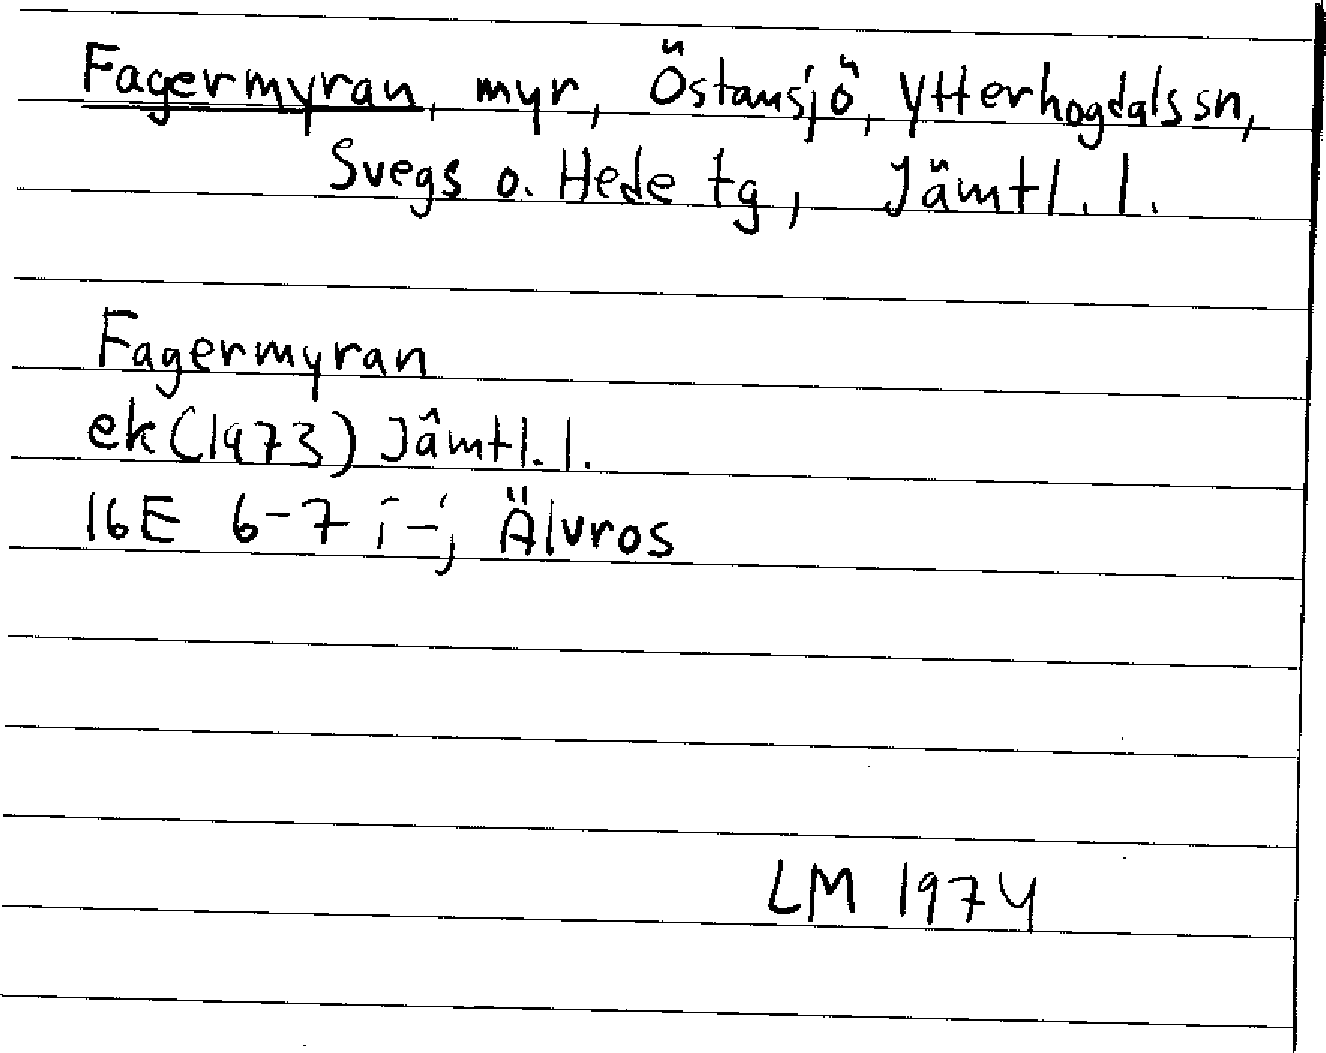 Fagermyran, myr, Östansjö, Ytterhogdals sn,
Svegs o. Hede tg, Jämtl. l.
Fagermyran
ek (1973) Jämtl. l.
16E 6-7 i-j Älvros
LM 1974